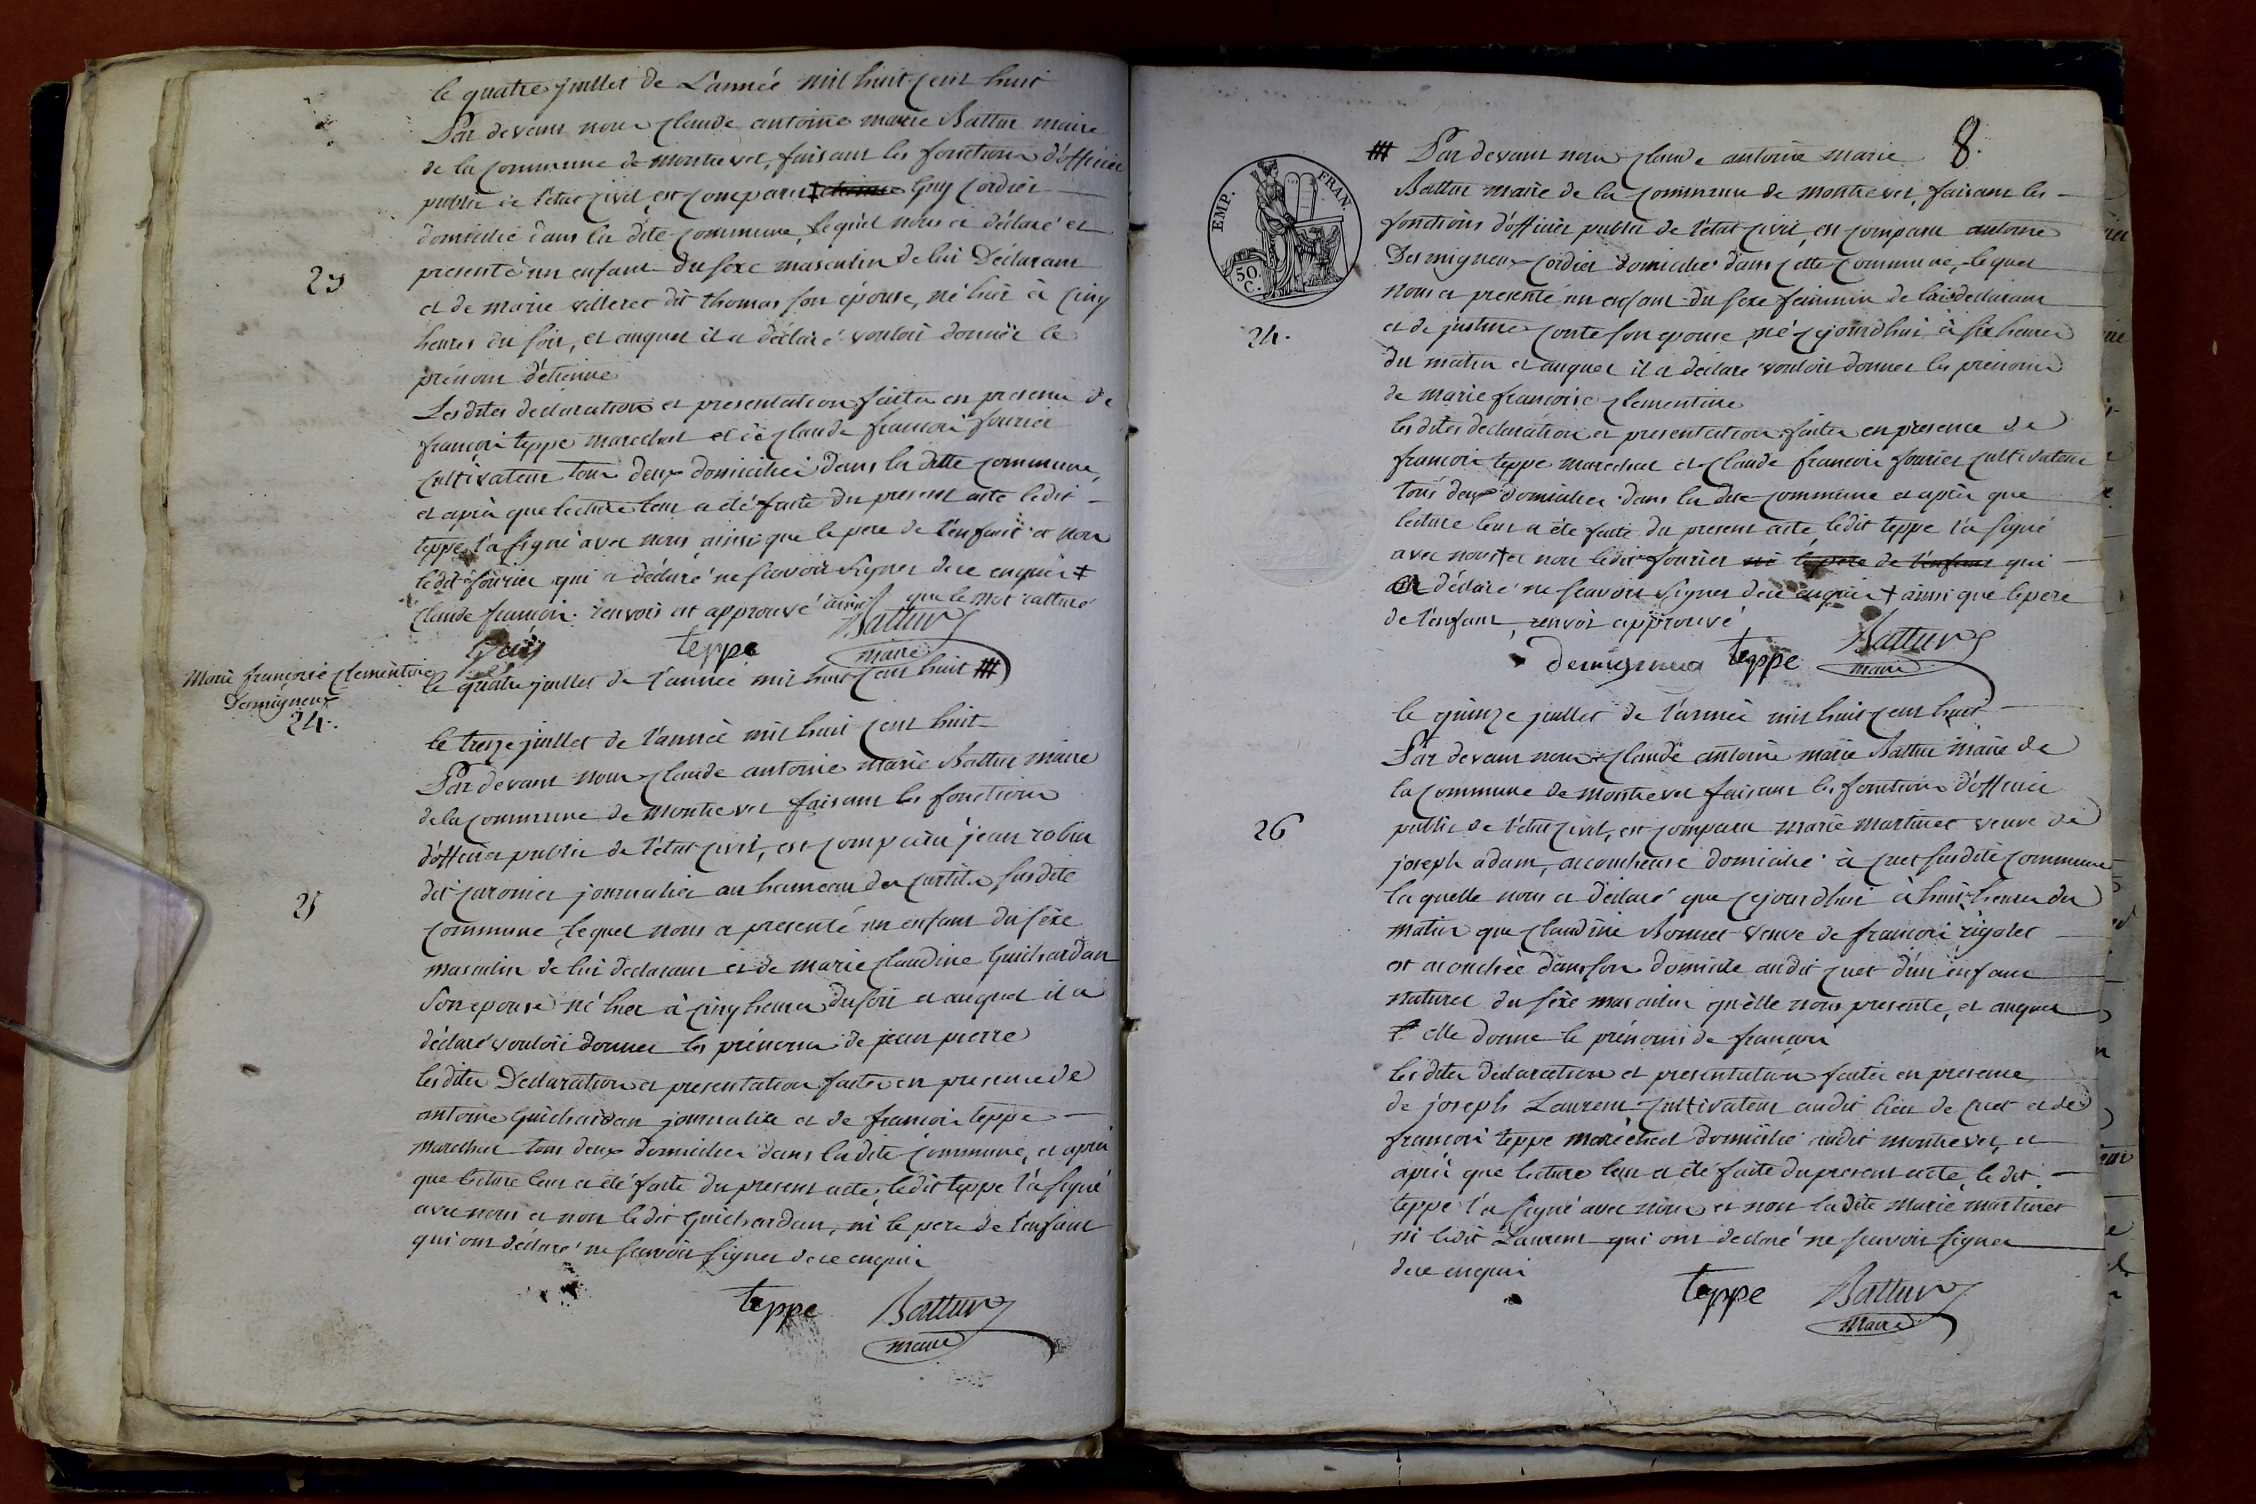 le quatre juillet de L'année mil huit cent huit
Par devant nous Claude antoine marie Battur maire
de la commune de montrevel, faisant les fonctions d'officier
public de l'état civil, est comparu ‡ Guy Cordier
domicilié dans la dite commune, lequel nous a déclaré et
presenté un enfant du sexe masculin de lui Déclarant
23
et de marie villeret dit thomas son épouse, né hier à cinq
heures du soir, et auquel il a déclaré vouloir donner le
prénom d'étienne
Les dites declaration et presentation faites en presence de
françois teppe marechal et de Claude francois fourier
cultivateur tous deux domiciliés dans la ditte commune,
et après que lecture leur a été faite du present acte ledit
teppe l'a signé avec nous ainsi que le pere de l'enfant et non
ledit fourier qui a déclaré ne scavoir signer de ce enquis ‡
Claude françois. renvois est approuvé ainsi que le mot rature
Guy teppe Battur
maire
Marie françoise Clementine
Desmigneux
24.
le quatre juillet de l'année mil huit cent huit
le treize juillet de l'année mil huit cent huit
Par devant nous Claude antoine marie Battur maire
de la commune de Montrevel faisant les fonctions
d'officier public de l'état civil, est comparu jean robin
dit journalier au hameau des sus dite
25
commune, lequel nous a presenté un enfant du sexe
masculin de lui declarant et de marie Claudine Guichardan
son epouse né hier à cinq heures du soir et auquel il a
déclaré vouloir donner les prénoms de jean pierre
les dites Declaration et presentation faites en presence de
antoine Guichardan journalier et de francois teppe
marechal tous deux domiciliés dans la dite commune, et après
que lecture leur a été faite du present acte, ledit teppe l'a signé
avec nous et non ledit Guichardan, ni le pere de l'enfant
qui ont déclaré ne scavoir signer de ce enquis
teppe Battur
maire
8.
Par devant nous Claude antoine marie
EMP. FRAN.
50 C.
Battur maire de la commune de montrevel, faisant les
fonctions d'officier public de l'état civil, est comparu antoine
Desmigneux Cordier domicilié dans cette commune, lequel
nous a presenté un enfant du sexe feminin de lui declarant
24.
et de justine conte son epouse, né cejourdhui à six heures
du matin et auquel il a déclaré vouloir donner les prénoms
de marie francoise Clementine
les dites declaration et presentation faites en presence de
francois teppe marechal et Claude francois fourier cultivateur
tous deux domiciliés dans la dite commune et après que
lecture leur a été faite du present acte ledit teppe l'a signé
avec nous et non ledit fourier ni le pere de l'enfant qui
a déclaré ne scavoir signer de ce enquis ‡ ainsi que le pere
de l'enfant, renvoi approuvé
desmigneux teppe Battur
maire
le quinze juillet de l'année mil huit cent huit
Par devant nous Claude antoine marie Battur maire de
la commune de montrevel faisant les fonctions d'officier
26
public de l'état civil, est comparu marie martinet veuve de
joseph adam, acoucheuse domicilié à cuet susdite commune
laquelle nous a déclaré que cejourdhui à huit heures du
matin que Claudine Bonnet veuve de francois rigolet
est acouchée dans son domicile audit cuet d'un enfant
naturel du sexe masculin qu'elle nous presente, et auquel
elle donne le prénoms de francois
les dites declaration et presentation faites en presence
de joseph Laurent cultivateur audit lieu de cuet et de
francois teppe maréchal domicilié audit montrevel, et
après que lecture leur a été faite du present acte, le dit
teppe l'a signé avec nous et non la dite marie martinet
ni ledit Laurent qui ont declaré ne scavoir signer
de ce enquis
teppe Battur
maire